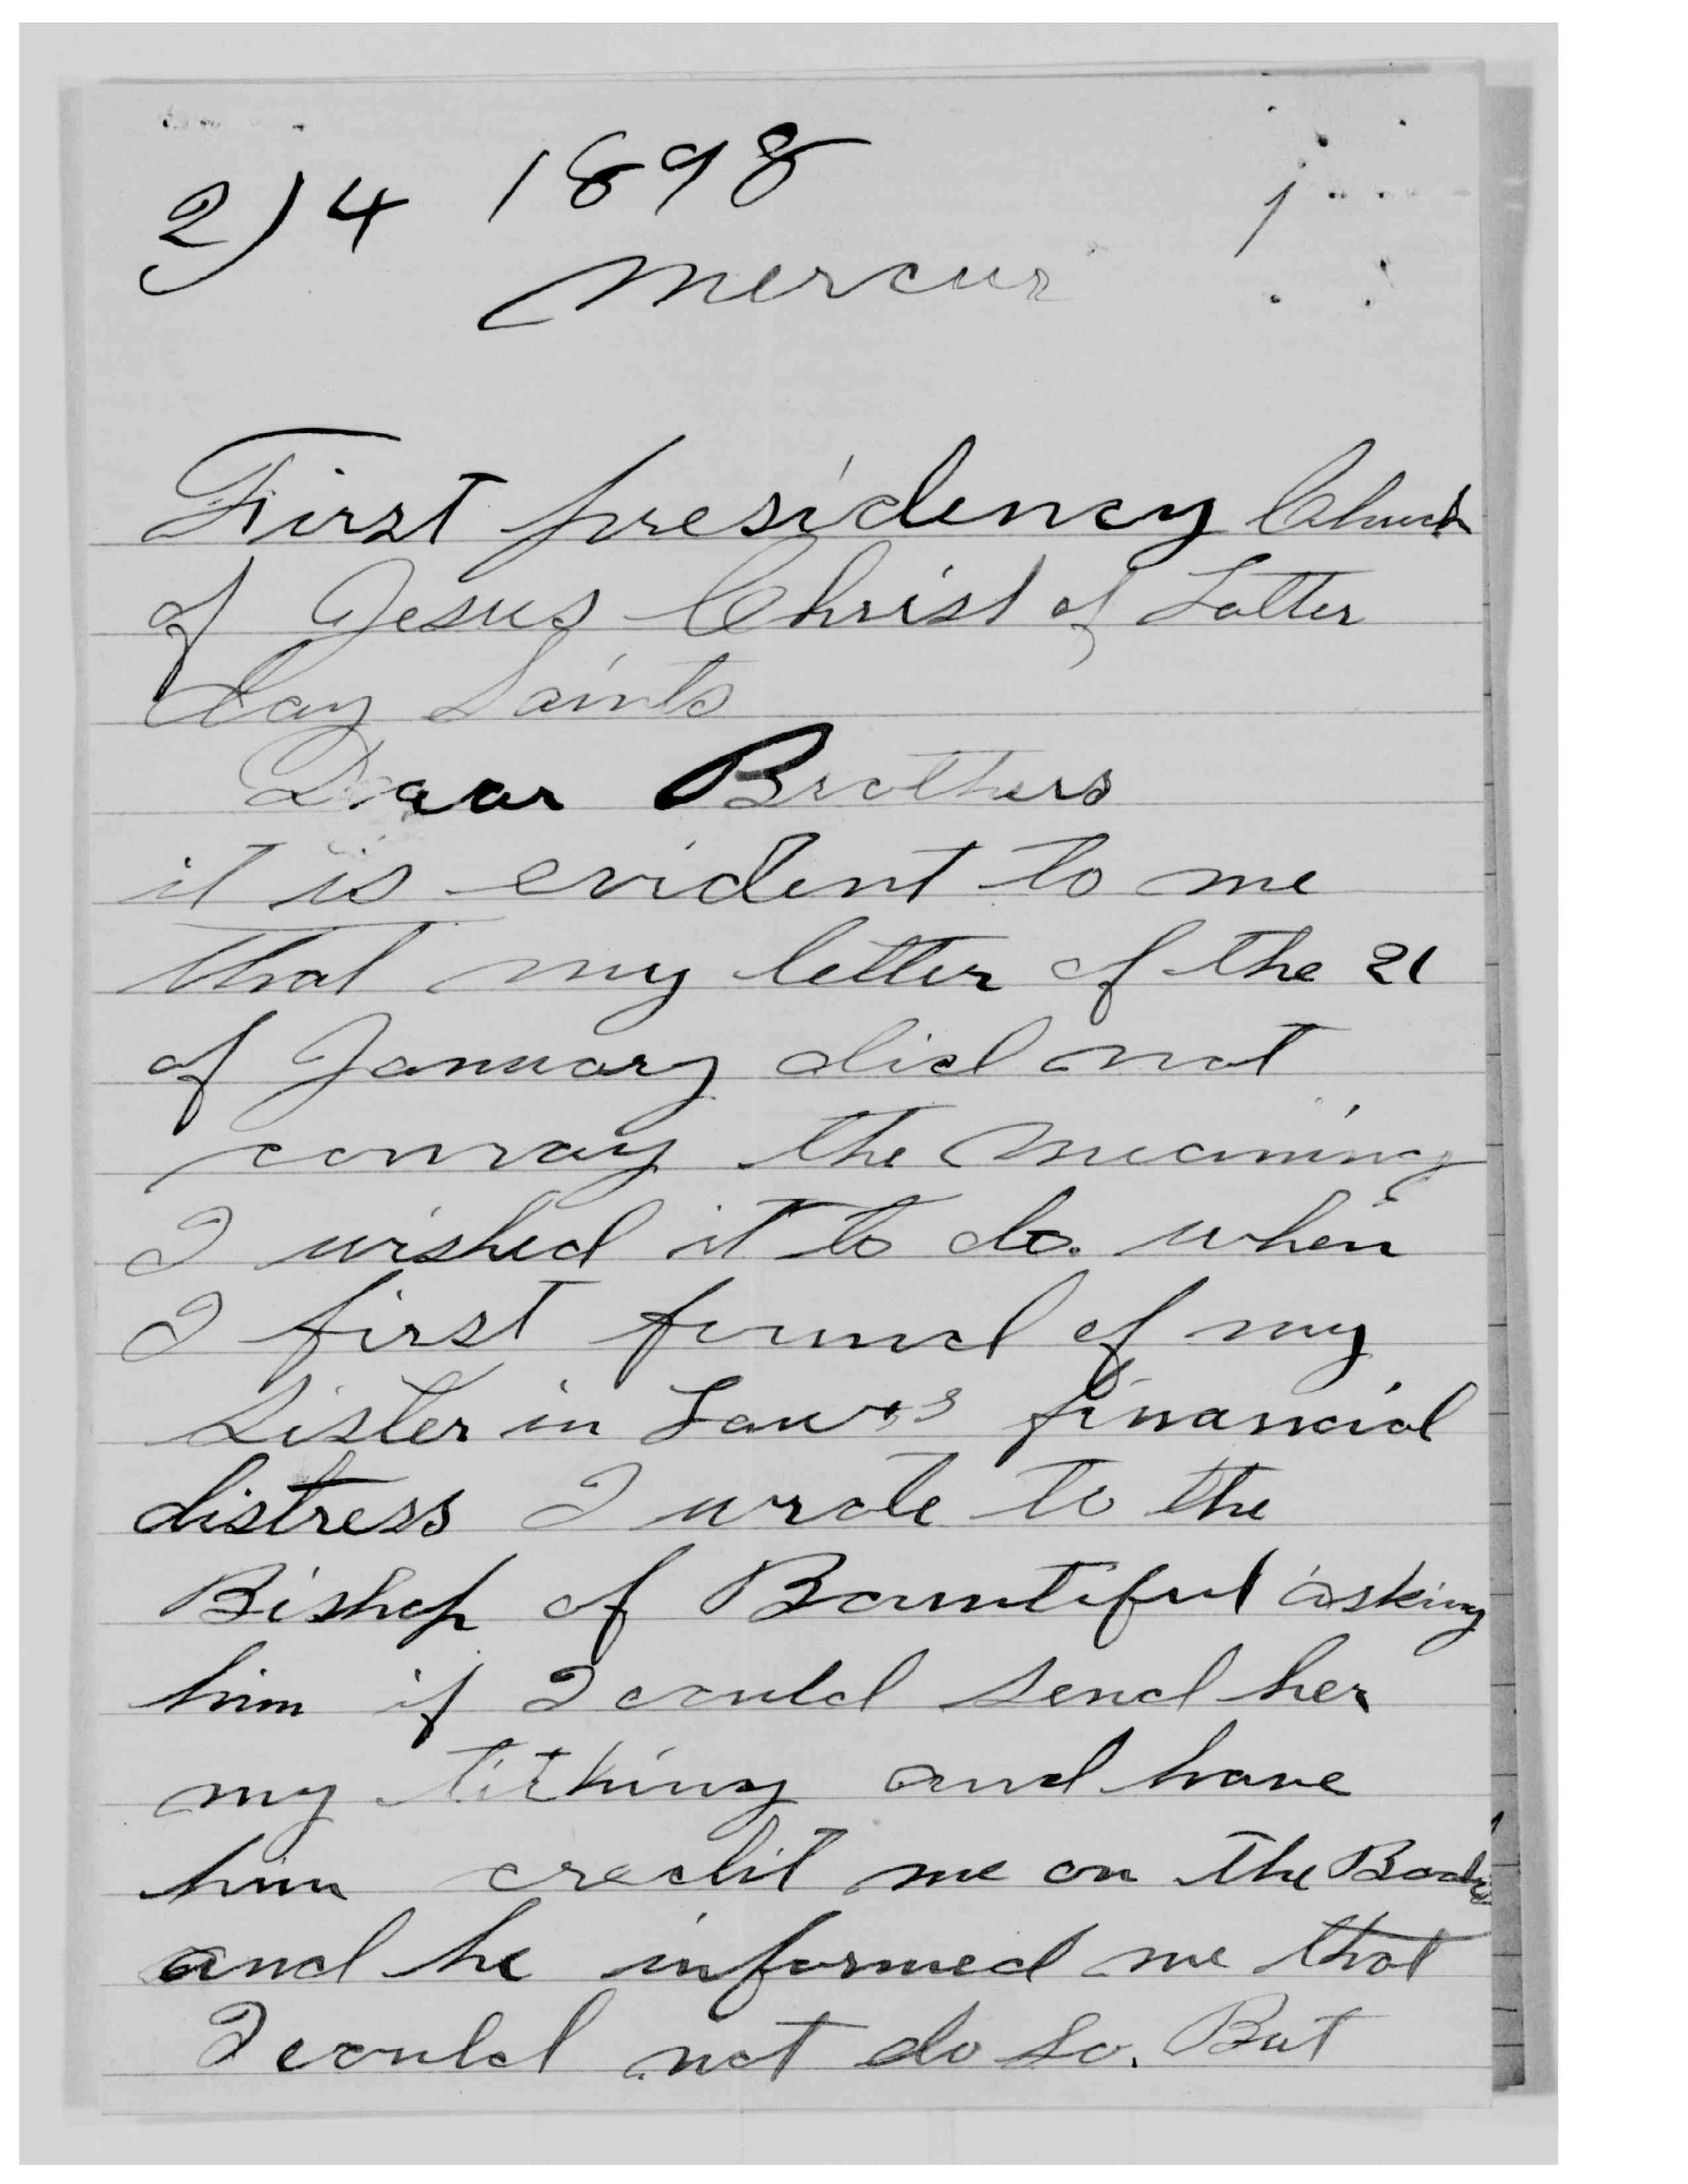 2/4 1898
Mercur
First presidency Church
of Jesus Christ of Latter
day Saints
Dear Brothers
it is evident to me
that my letter of the 21
of January did not
convay the meaning
I wished it to do. when
I first found of my
Sister in Laws financial
distress I wrote to the
Bishop of Bountiful asking
him if I could send her
my tithing and have
him credit me on the Books
and he informed me that
I could not do so. But